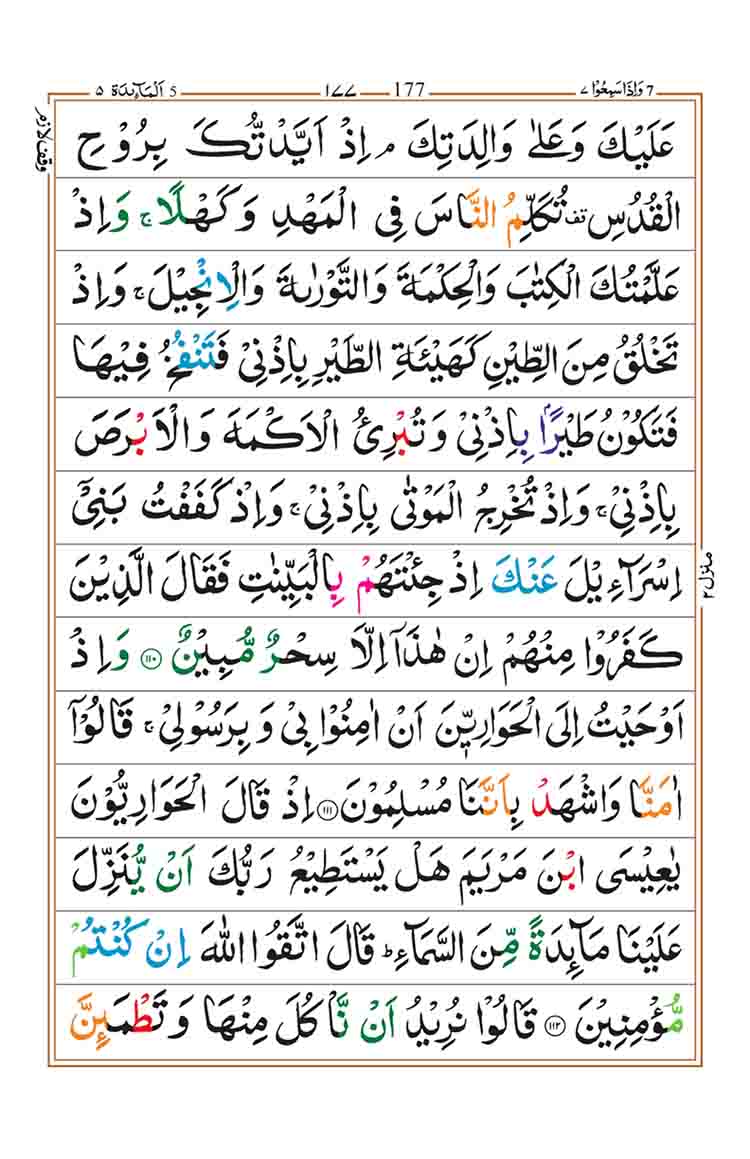 5 اَلْمَآئِدَة ۵ — ۱۷۷ — 177 — 7 وَاِذَا سَمِعُوْا ۷
وقف لازم
عَلَيْكَ وَعَلٰى وَالِدَتِكَ ۘ اِذْ اَيَّدْتُّكَ بِرُوْحِ
الْقُدُسِ قف تُكَلِّمُ النَّاسَ فِى الْمَهْدِ وَكَهْلًا ۚ وَاِذْ
عَلَّمْتُكَ الْكِتٰبَ وَالْحِكْمَةَ وَالتَّوْرٰىةَ وَالْاِنْجِيْلَ ۚ وَاِذْ
تَخْلُقُ مِنَ الطِّيْنِ كَهَيْئَةِ الطَّيْرِ بِاِذْنِىْ فَتَنْفُخُ فِيْهَا
فَتَكُوْنُ طَيْرًۢا بِاِذْنِىْ وَتُبْرِئُ الْاَكْمَهَ وَالْاَبْرَصَ
بِاِذْنِىْ ۚ وَاِذْ تُخْرِجُ الْمَوْتٰى بِاِذْنِىْ ۚ وَاِذْ كَفَفْتُ بَنِىْۤ
اِسْرَآءِيْلَ عَنْكَ اِذْ جِئْتَهُمْ بِالْبَيِّنٰتِ فَقَالَ الَّذِيْنَ
منزل ۲
كَفَرُوْا مِنْهُمْ اِنْ هٰذَاۤ اِلَّا سِحْرٌ مُّبِيْنٌ ۝۱۱۰ وَاِذْ
اَوْحَيْتُ اِلَى الْحَوَارِيّٖنَ اَنْ اٰمِنُوْا بِىْ وَبِرَسُوْلِىْ ۚ قَالُوْۤا
اٰمَنَّا وَاشْهَدْ بِاَنَّنَا مُسْلِمُوْنَ ۝۱۱۱ اِذْ قَالَ الْحَوَارِيُّوْنَ
يٰعِيْسَى ابْنَ مَرْيَمَ هَلْ يَسْتَطِيْعُ رَبُّكَ اَنْ يُّنَزِّلَ
عَلَيْنَا مَآئِدَةً مِّنَ السَّمَآءِ ؕ قَالَ اتَّقُوا اللّٰهَ اِنْ كُنْتُمْ
مُّؤْمِنِيْنَ ۝۱۱۲ قَالُوْا نُرِيْدُ اَنْ نَّاْكُلَ مِنْهَا وَتَطْمَئِنَّ